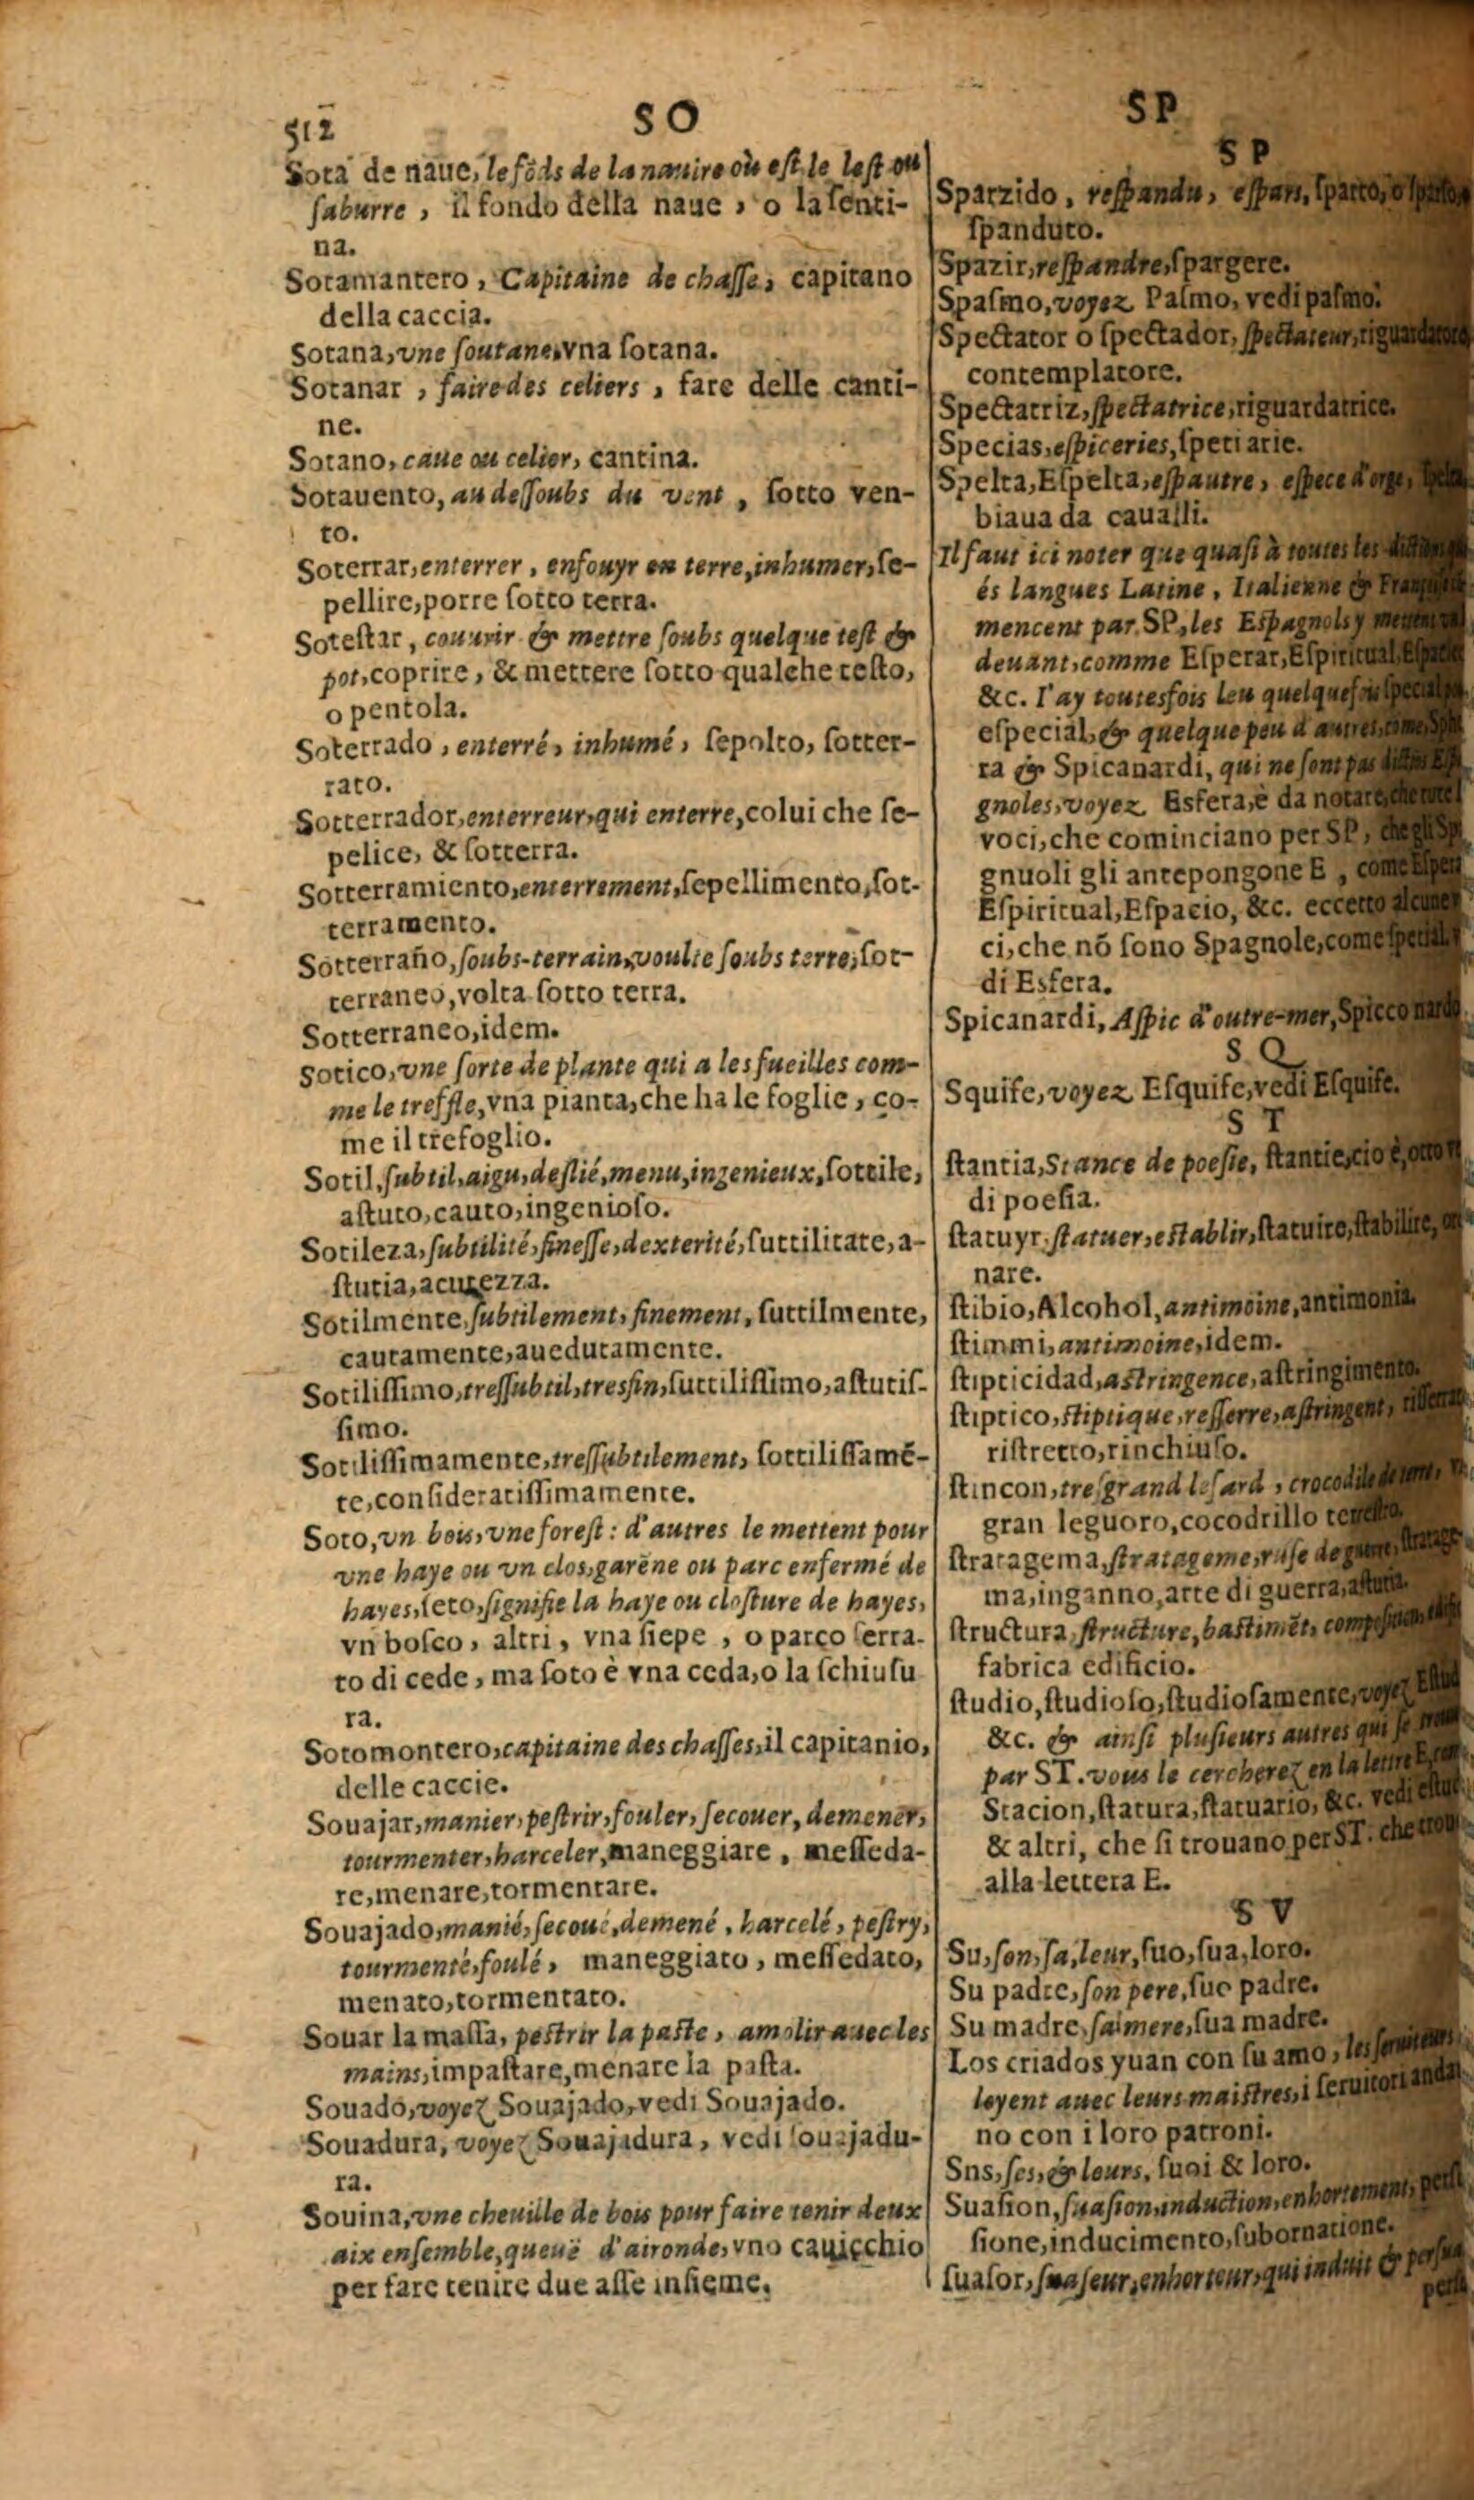 512
SO
SP
Sota de naue, le fõds de la nauire où eſt le leſt ou
ſaburre, il fondo della naue, o la ſenti-
na.
Sotamantero, Capitaine de chaſſe, capitano
della caccia.
Sotana, vne ſoutane, vna ſotana.
Sotanar, faire des celiers, fare delle canti-
ne.
Sotano, caue ou celier, cantina.
Sotauento, au deſſoubs du vent, ſotto ven-
to.
Soterrar, enterrer, enfouyr en terre, inhumer, ſe-
pellire, porre ſotto terra.
Soteſtar, couurir & mettre ſoubs quelque teſt &
pot, coprire, & mettere ſotto qualche teſto,
o pentola.
Soterrado, enterré, inhumé, ſepolto, ſotter-
rato.
Sotterrador, enterreur, qui enterre, colui che ſe-
pelice, & ſotterra.
Sotterramiento, enterrement, ſepellimento, ſot-
terramento.
Sotterraño, ſoubs-terrain, voulte ſoubs terre, ſot-
terraneo, volta ſotto terra.
Sotterraneo, idem.
Sotico, vne ſorte de plante qui a les fueilles com-
me le treffle, vna pianta, che ha le foglie, co-
me il trefoglio.
Sotil, ſubtil, aigu, deſlié, menu, ingenieux, ſottile,
aſtuto, cauto, ingenioſo.
Sotileza, ſubtilité, fineſſe, dexterité, ſuttilitate, a-
ſtutia, acutezza.
Sotilmente, ſubtilement, finement, ſuttilmente,
cautamente, auedutamente.
Sotiliſſimo, treſſubtil, tresfin, ſuttiliſſimo, aſtutiſ-
ſimo.
Sotiliſſimamente, treſſubtilement, ſottiliſſamẽ-
te, conſideratiſſimamente.
Soto, vn bois, vne foreſt: d'autres le mettent pour
vne haye ou vn clos, garẽne ou parc enfermé de
hayes, ſeto, ſignifie la haye ou cloſture de hayes,
vn boſco, altri, vna ſiepe, o parco ſerra-
to di cede, ma ſoto è vna ceda, o la ſchiuſu
ra.
Sotomontero, capitaine des chaſſes, il capitanio,
delle caccie.
Souajar, manier, peſtrir, fouler, ſecouer, demener,
tourmenter, harceler, maneggiare, meſſeda-
re, menare, tormentare.
Souajado, manié, ſecoué, demené, harcelé, peſtry,
tourmenté, foulé, maneggiato, meſſedato,
menato, tormentato.
Souar la maſſa, peſtrir la paſte, amolir auec les
mains, impaſtare, menare la paſta.
Souado, voyez Souajado, vedi Souajado.
Souadura, voyez Souajadura, vedi ſouajadu-
ra.
Souina, vne cheuille de bois pour faire tenir deux
aix enſemble, queuë d'aironde, vno cauicchio
per fare tenire due aſſe inſieme.
SP
Sparzido, reſpandu, eſpars, ſparto, o ſparſo,
ſpanduto.
Spazir, reſpandre, ſpargere.
Spaſmo, voyez Paſmo, vedi paſmo.
Spectator o ſpectador, ſpectateur, riguardatore,
contemplatore.
Spectatriz, ſpectatrice, riguardatrice.
Specias, eſpiceries, ſpetiarie.
Spelta, Eſpelta, eſpautre, eſpece d'orge, ſpelta,
biaua da caualli.
Il faut ici noter que quaſi à toutes les
és langues Latine, Italienne &
mencent par SP, les Eſpagnols y mettent
deuant, comme Eſperar, Eſpiritual,
&c. I'ay toutesfois leu quelquefois ſpecial
eſpecial, & quelque peu d'autres, cõme,
ra & Spicanardi, qui ne ſont pas
gnoles, voyez Esfera, è da notare, che
voci, che cominciano per SP, che gli
gnuoli gli antepongone E, come
Eſpiritual, Eſpacio, &c. eccetto
ci, che nõ ſono Spagnole, come ſpecial,
di Esfera.
Spicanardi, Aſpic d'outre-mer, Spicco nardo.
SQ
Squife, voyez Eſquife, vedi Eſquife.
ST
ſtantia, Stance de poeſie, ſtantie, cio è, otto
di poeſia.
ſtatuyr, ſtatuer, eſtablir, ſtatuire, ſtabilire,
nare.
ſtibio, Alcohol, antimoine, antimonia.
ſtimmi, antimoine, idem.
ſtipticidad, aſtringence, aſtringimento.
ſtiptico, ſtiptique, reſſerre, aſtringent,
riſtretto, rinchiuſo.
ſtincon, treſgrand leſard, crocodile de terre,
gran leguoro, cocodrillo terreſtro.
ſtratagema, ſtratageme, ruſe de guerre,
ma, inganno, arte di guerra, aſtutia.
ſtructura, ſtructure, baſtimẽt, compoſition,
fabrica edificio.
ſtudio, ſtudioſo, ſtudioſamente, voyez
&c. & ainſi pluſieurs autres qui ſe
par ST. vous le cercherez en la lettre E,
Stacion, ſtatura, ſtatuario, &c. vedi
& altri, che ſi trouano per ST. che
alla lettera E.
SV
Su, ſon, ſa, leur, ſuo, ſua, loro.
Su padre, ſon pere, ſuo padre.
Su madre, ſa mere, ſua madre.
Los criados yuan con ſu amo, les ſeruiteurs
loyent auec leurs maiſtres, i ſeruitori
no con i loro patroni.
Sns, ſes, & leurs, ſuoi & loro.
Suaſion, ſuaſion, induction, enhortement,
ſione, inducimento, ſubornatione.
ſuaſor, ſuaſeur, enhorteur, qui induit &